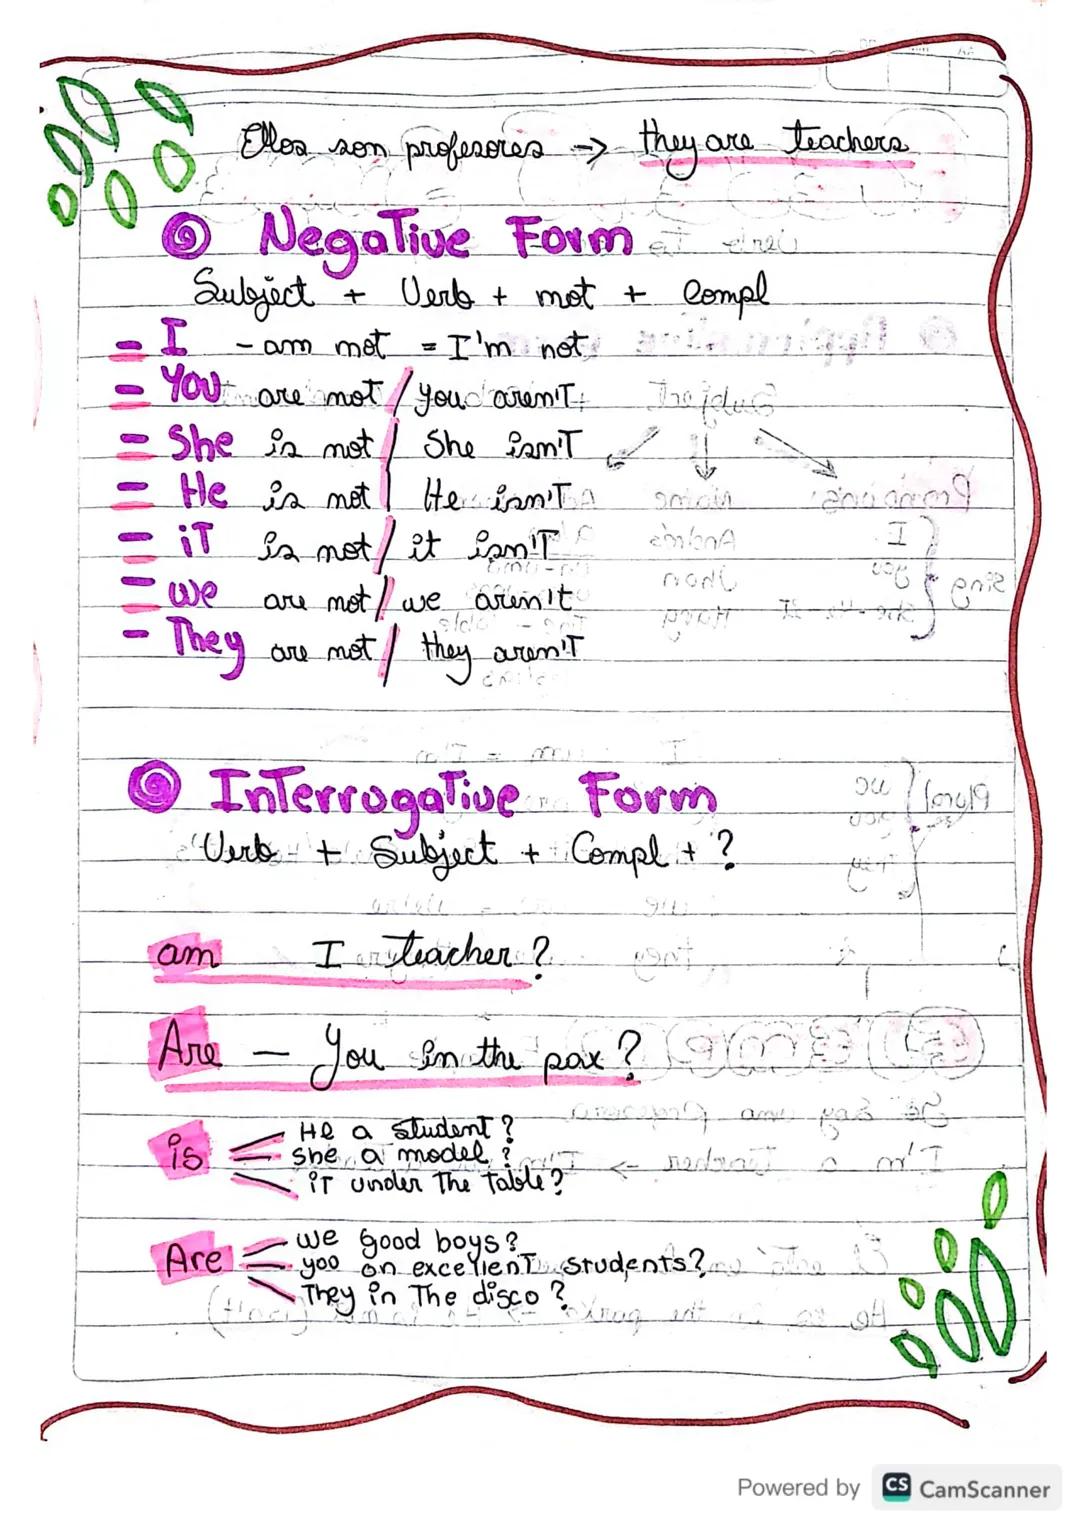 Ellos son profesores → they are teachers
Negative Form
Subject + Verb + not + Compl
= I - am not = I'm not
= You are not / you aren'T
= She is not / She isn'T
= He is not / He isn'T
= iT is not / it isn'T
= we are not / we aren't
- They are not / they aren'T
InTerrogaTive Form
Verb + Subject + Compl + ?
am I teacher?
Are — You in the pax?
is
He a student?
she a model?
iT under The Table?
Are
we good boys?
yoo on excellenT students?
They in The disco?
Powered by CS CamScanner